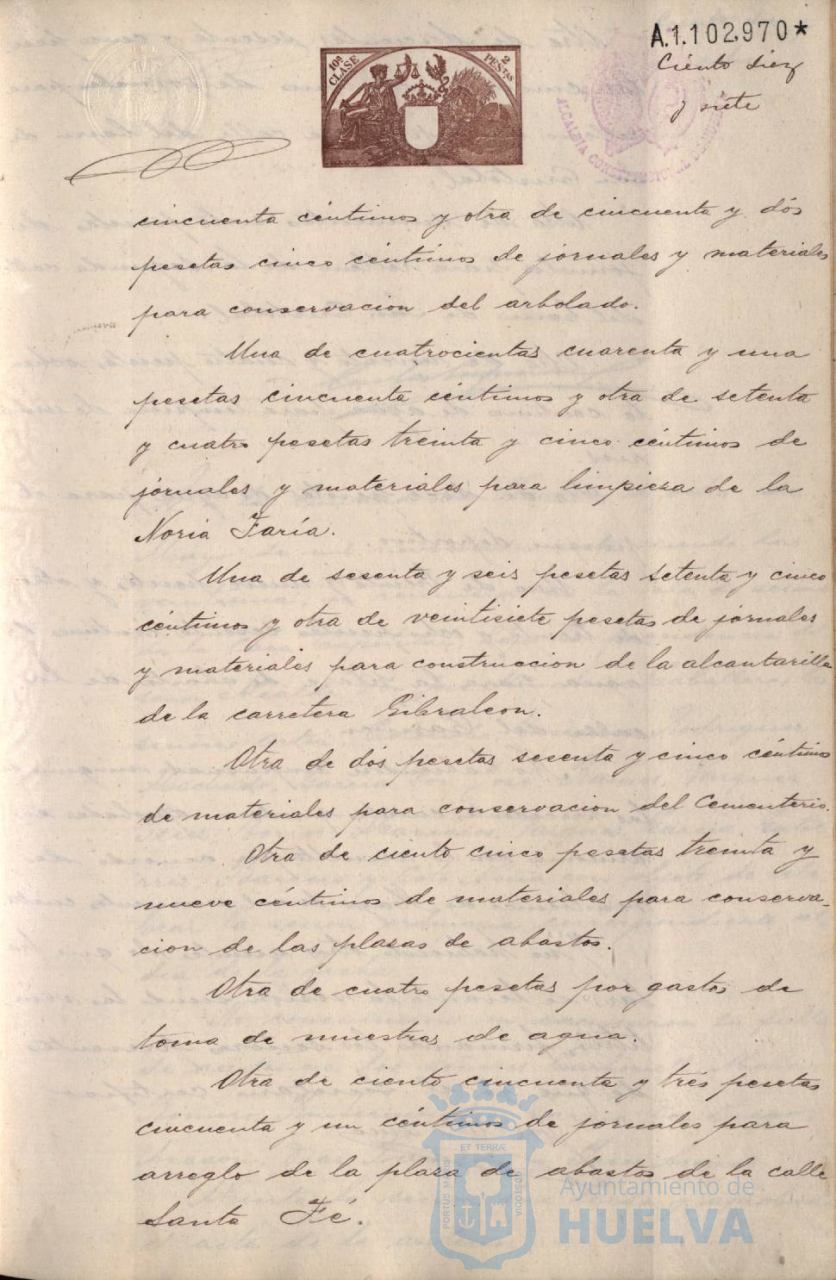 A.1.102.970*
Ciento diez
y siete
10ª CLASE
2 PESTAS
ALCALDIA CONSTITUCIONAL
cincuenta céntimos y otra de cincuenta y dós
pesetas cinco céntimos de jornales y materiales
para conservacion del arbolado.
Una de cuatrocientas cuarenta y una
pesetas cincuenta céntimos y otra de setenta
y cuatro pesetas treinta y cinco céntimos de
jornales y materiales para limpieza de la
Noria Faría.
Una de sesenta y seis pesetas setenta y cinco
céntimos y otra de veintisiete pesetas de jornales
y materiales para construccion de la alcantarilla
de la carretera Gibraleon.
Otra de dós pesetas sesenta y cinco céntimos
de materiales para conservacion del Cementerio.
Otra de ciento cinco pesetas treinta y
nueve céntimos de materiales para conserva-
cion de las plasas de abastos.
Otra de cuatro pesetas por gastos de
toma de muestras de agua.
Otra de ciento cincuenta y trés pesetas
cincuenta y un céntimos de jornales para
arreglo de la plaza de abastos de la calle
Santa Fé.
ET TERRÆ
PORTUS MARIS
CUSTODIA
Ayuntamiento de
HUELVA